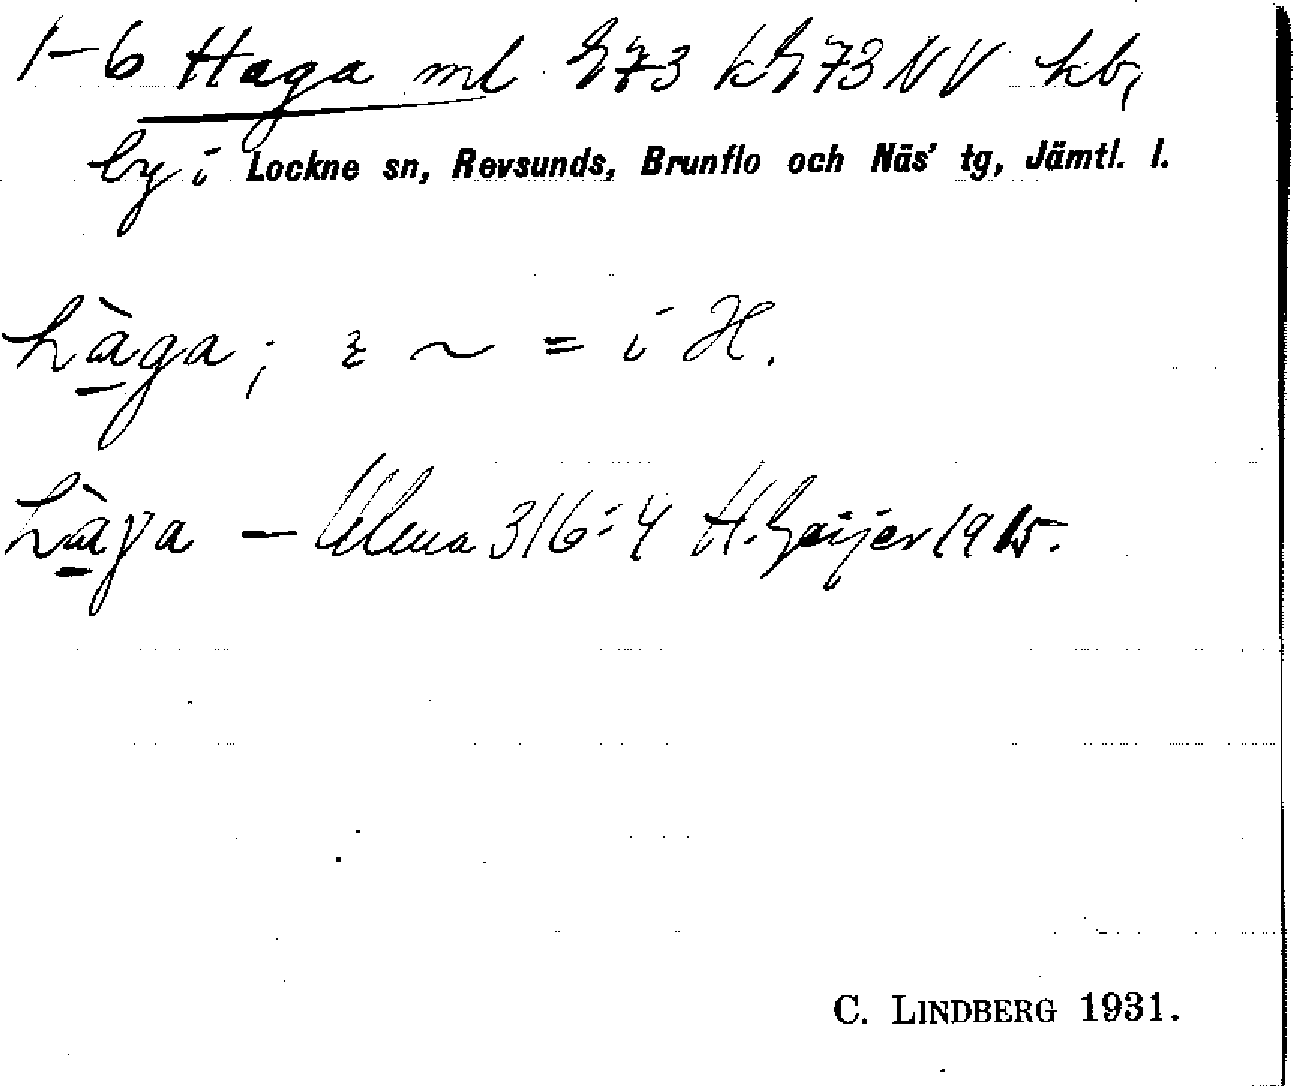 1-6 Haga ml 873 k873 NV kb,
by i Lockne sn, Revsunds, Brunflo och Näs' tg, Jämtl. l.
hàga; ~ = i H.
hàγa — Ulma 316:4 H. Geijer 1915.
C. LINDBERG 1931.